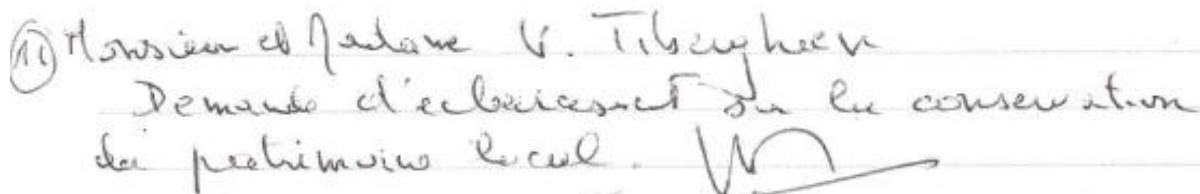 11 Monsieur et Madame V. Tiberghien
Demande d'éclaircissement sur la conservation
du patrimoine local.